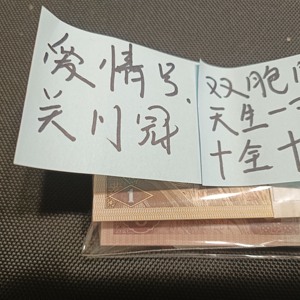 爱情号、
关门冠
双胞
天生一
十全十
1